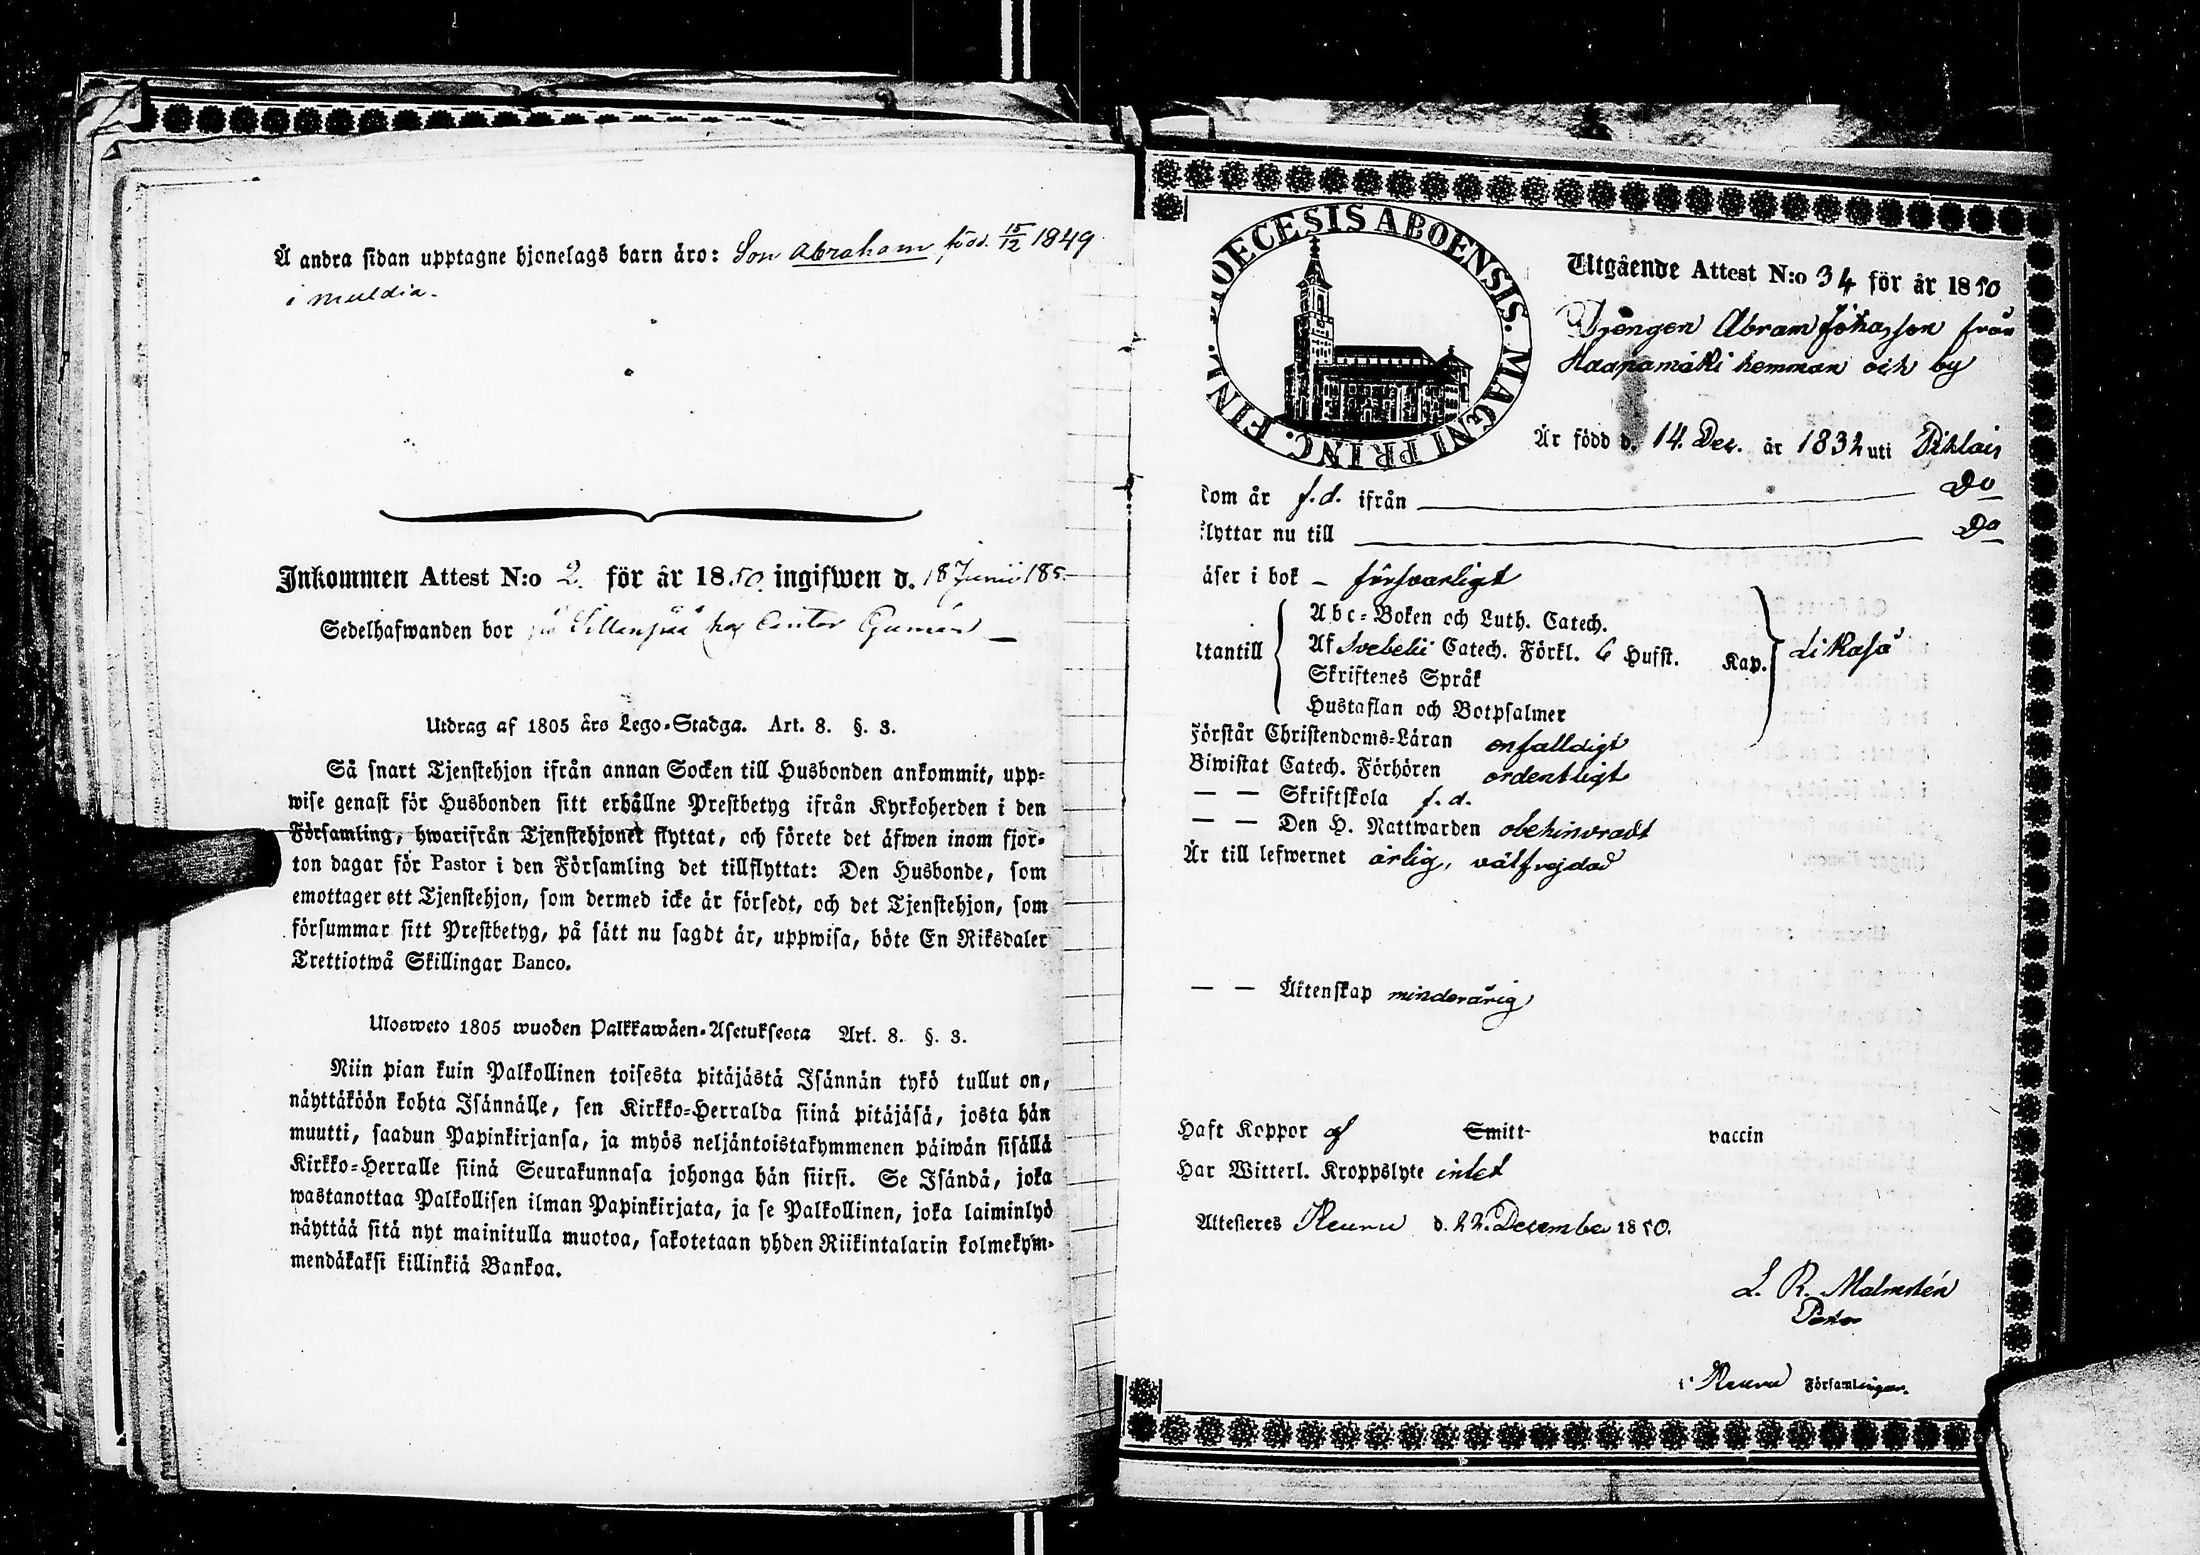 Å andra sidan upptagne hjonelags barn äro: Son Abraham född 15/12 1849
i Muldia.
Inkommen Attest N:o 2. för år 1850. ingifwen d. 18 Junii 185
Sedelhafwanden bor på hos Cantor
Utdrag af 1805 års Lego-Stadga. Art. 8. §. 3.
Så snart Tjenstehjon ifrån annan Socken till Husbonden ankommit, upp=
wise genast för Husbonden sitt erhållne Prestbetyg ifrån Kyrkoherden i den
Församling, hwarifrån Tjenstehjonet flyttat, och förete det äfwen inom fjor-
ton dagar för Pastor i den Församling det tillflyttat: Den Husbonde, som
emottager ett Tjenstehjon, som dermed icke är försedt, och det Tjenstehjon, som
försummar sitt Prestbetyg, på sätt nu sagdt är, uppwisa, böte En Riksdaler
Trettiotwå Skillingar Banco.
Ulosweto 1805 wuoden Palkkawäen-Asetuksesta Art. 8. §. 3.
Niin pian kuin Palkollinen toisesta pitäjästä Isännän tykö tullut on,
näyttäköön kohta Isännälle, sen Kirkko=Herralda siinä pitäjäsä, josta hän
muutti, saadun Papinkirjansa, ja myös neljäntoistakymmenen päiwän sisällä
Kirkko=Herralle siinä Seurakunnasa johonga hän siirsi. Se Isändä, joka
wastanottaa Palkollisen ilman Papinkirjata, ja se Palkollinen, joka laiminlyö
näyttää sitä nyt mainitulla muotoa, sakotetaan yhden Riikintalarin kolmekym-
mendäkaksi killinkiä Bankoa.
DIOECESIS ABOENSIS. MAGNI PRINC. FINL.
Utgående Attest N:o 34 för år 1850
Drengen Abram Johasson från
Haapamäki hemman och by
Är född d. 14. Dec. år 1832 uti Pihlais
kom år f.d. ifrån Do
flyttar nu till Do
äser i bok - försvarligt
Abc=Boken och Luth. Catech.
tantill Af Svebelii Catech. Förkl. 6 Husst. Kap. likaså
Skriftenes Språk
Hustaflan och Botpsalmer
Förstår Christendoms=Läran enfalldigt
Biwistat Catech. Förhören ordentligt
— — Skriftskola f.d.
— — Den H. Nattwarden obehindradt
Är till lefwernet ärlig, välfrejdad
— — Äktenskap minderårig
Haft Koppor af Smitt vaccin
Har Witterl. Kroppslyte intet
Attesteres Keuru d. 22. December 1850.
L. R. Malmstén
Pastor
i Keuru Församlingar.